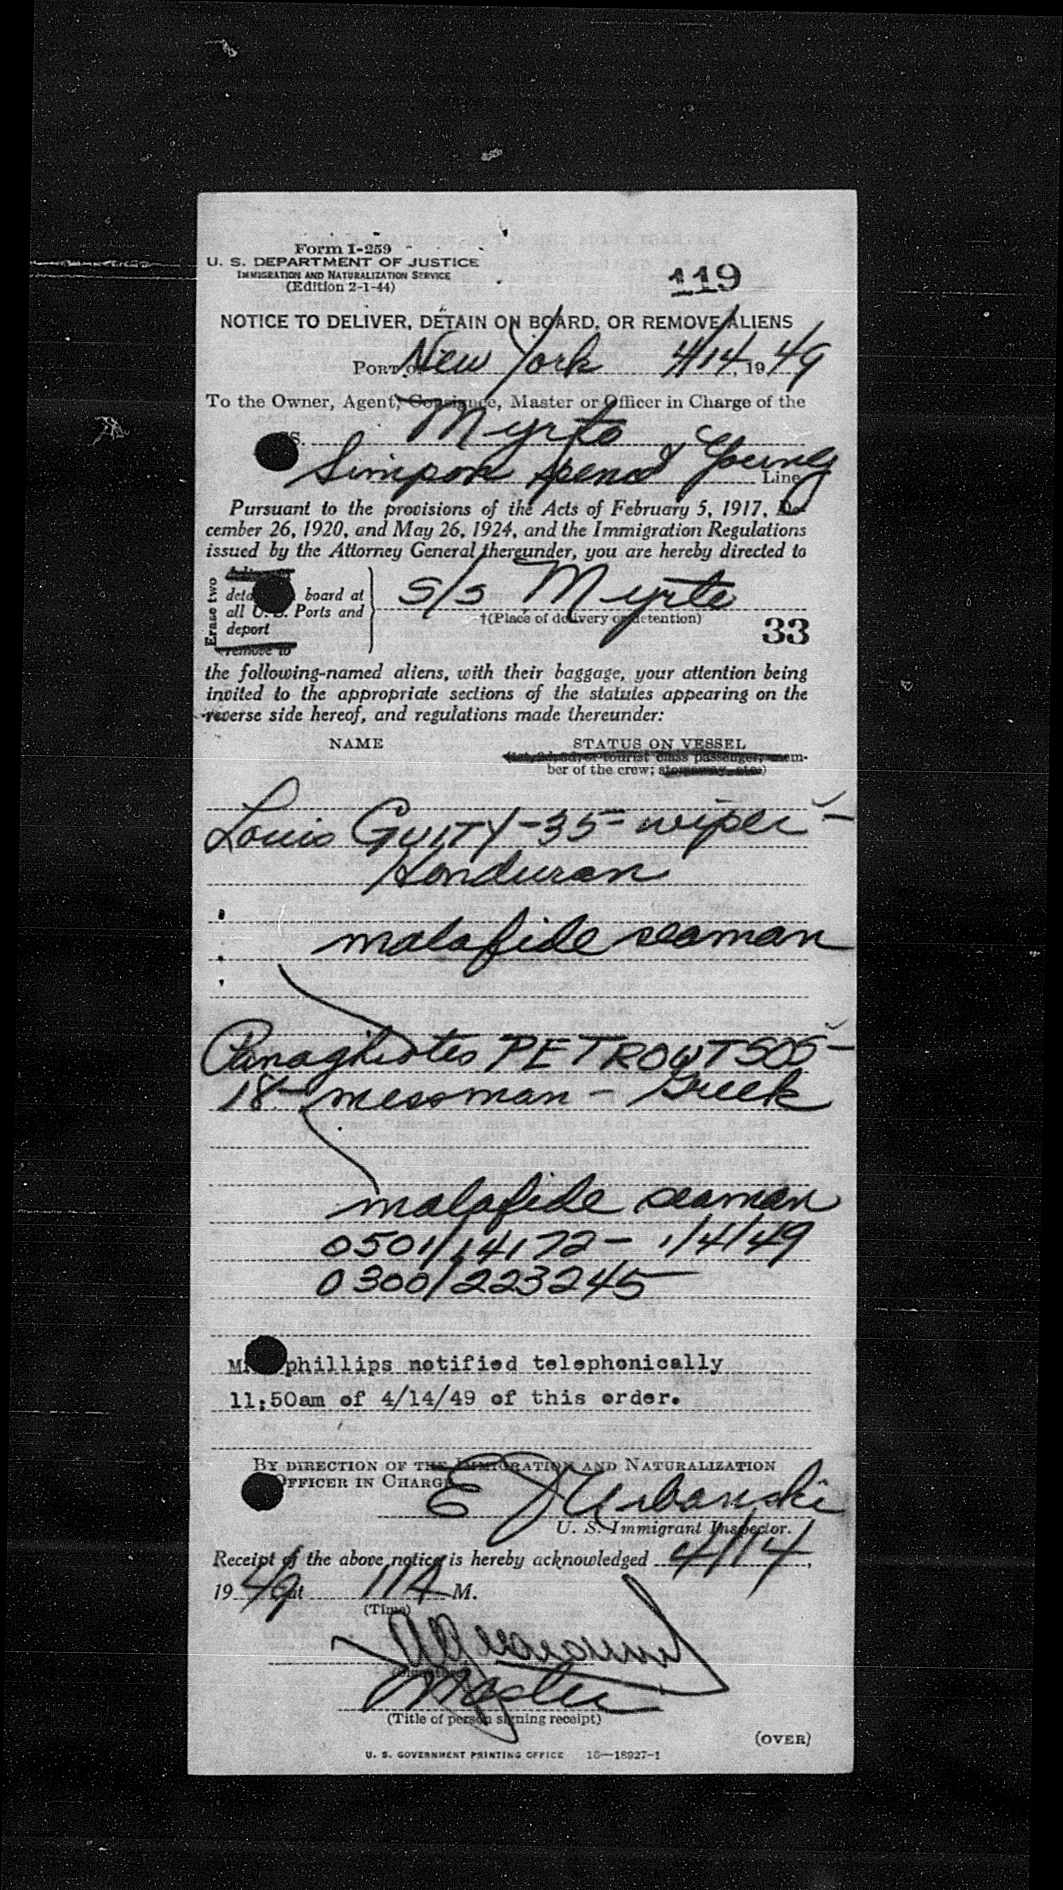 Form I-259
U. S. DEPARTMENT OF JUSTICE
IMMIGRATION AND NATURALIZATION SERVICE
(Edition 2-1-44)
119
NOTICE TO DELIVER, DETAIN ON BOARD, OR REMOVE ALIENS
PORT OF New York 4/14, 1949
To the Owner, Agent, Consignee, Master or Officer in Charge of the
SS. Myrto
Simpon Spend & Young Line
Pursuant to the provisions of the Acts of February 5, 1917, De-
cember 26, 1920, and May 26, 1924, and the Immigration Regulations
issued by the Attorney General thereunder, you are hereby directed to
Erase two
board at
all U. S. Ports and
deport
remove to
s/s Myrto
†(Place of delivery or detention)
33
the following-named aliens, with their baggage, your attention being
invited to the appropriate sections of the statutes appearing on the
reverse side hereof, and regulations made thereunder:
NAME STATUS ON VESSEL
(1st, 2d, 3d, or tourist class passenger; mem-
ber of the crew; stowaway, etc.)
Louis GUITY-35-wiper-
Honduran
malafide seaman
Panaghiotes PETROWTSOS-
18-messman-Greek
malafide seaman
0501/14172- 1/4/49
0300/223245
phillips notified telephonically
11:50am of 4/14/49 of this order.
BY DIRECTION OF THE IMMIGRATION AND NATURALIZATION
OFFICER IN CHARGE
E J Urbanski
U. S. Immigrant Inspector.
Receipt of the above notice is hereby acknowledged 4/14,
1949 at 11 A M.
(Time)
(Signature)
Master
(Title of person signing receipt)
(OVER)
U. S. GOVERNMENT PRINTING OFFICE 16—18927-1